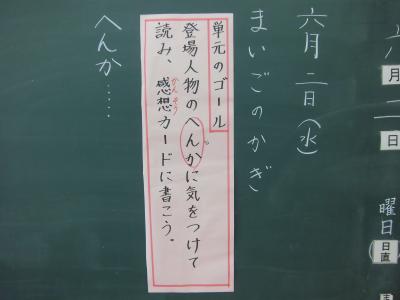 六月二日
曜日
日直
六月二日(水)
まいごのかぎ
単元のゴール
登場人物のへんかに気をつけて
読み、感想カードに書こう。
かんそう
へんか……